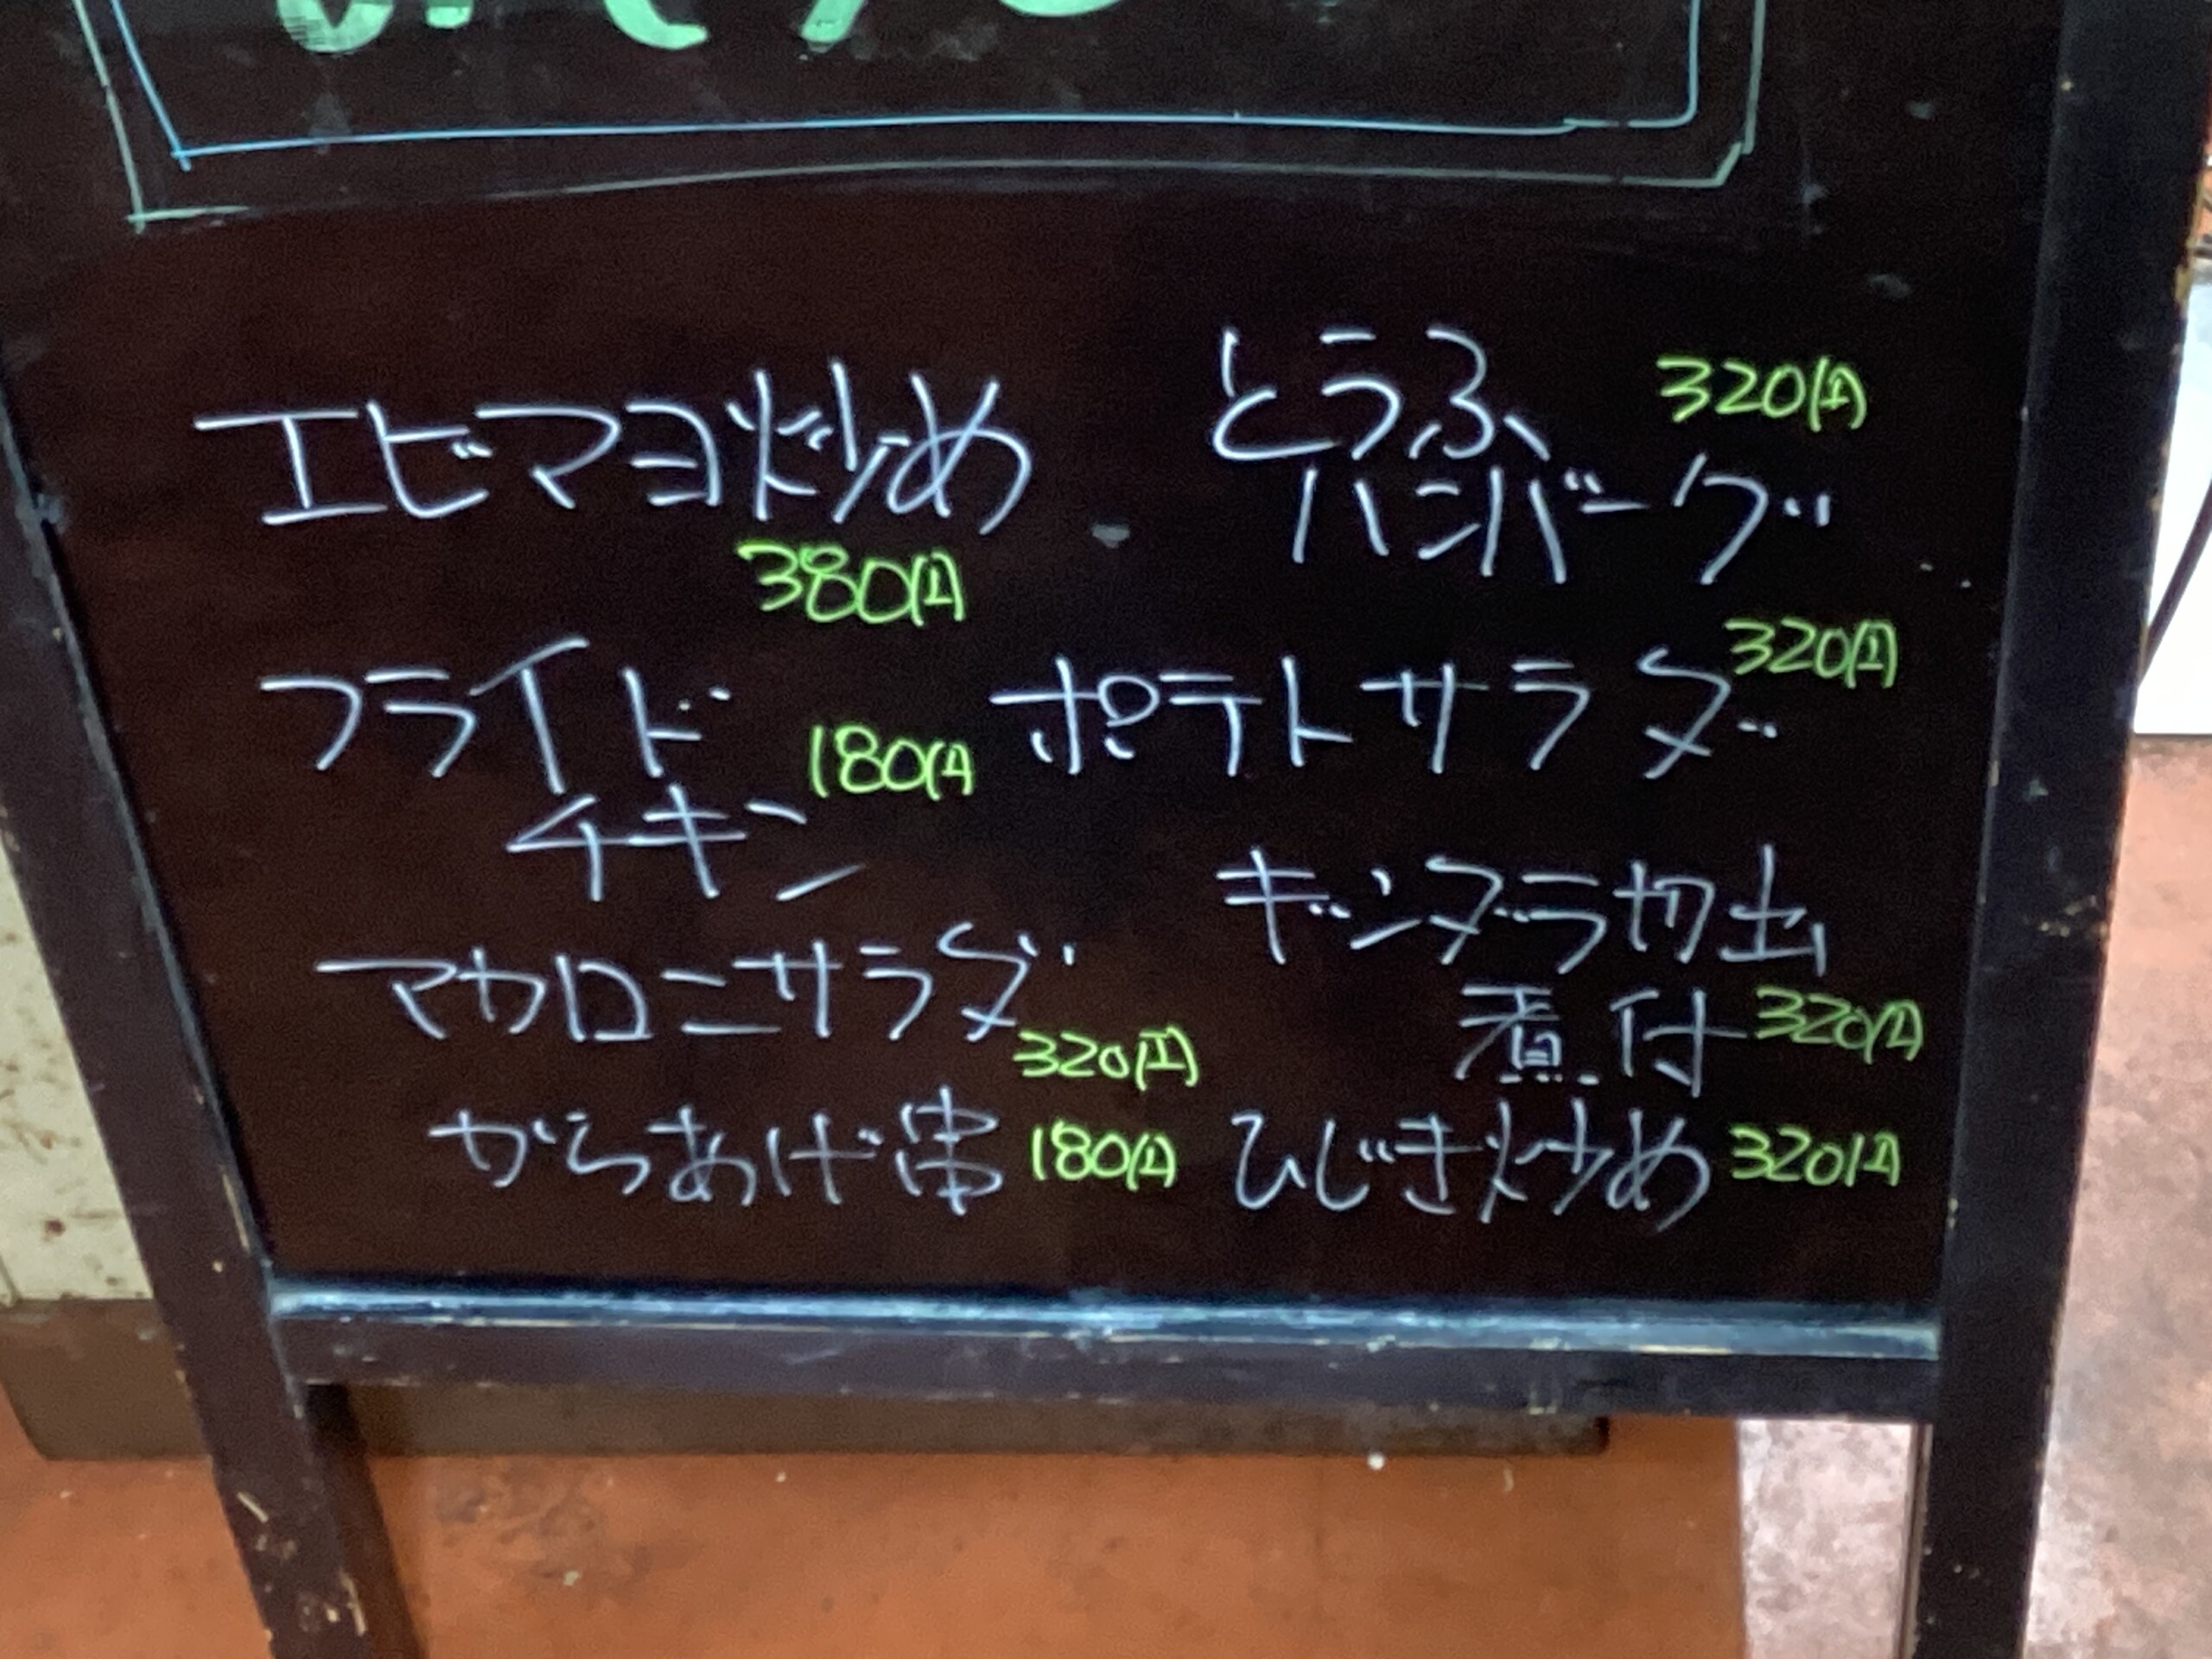 エビマヨ炒め
380(

フライド
チキン
180(
マカロニサラダ
320(
からあげ串 180(
とうふ
320(
ハンバーグ
ポテトサラダ
320(
ギンダラ切出
煮付 320(
ひじき炒め 320(